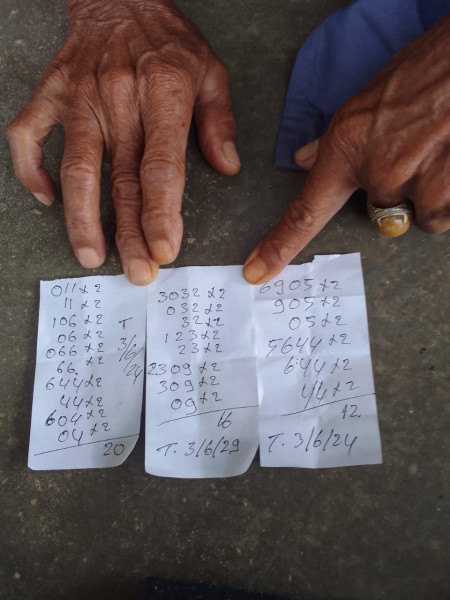 011x2
11x2
106x2
06x2
066x2
66.x2
644x2
44x2
604x2
04x2
20
T
3/6
/24
3032x2
032x2
32x2
123x2
23x2
2309x2
309x2
09x2
16
T. 3/6/29
6905x2
905x2
05x2
5644x2
644x2
44x2
12.
T. 3/6/24